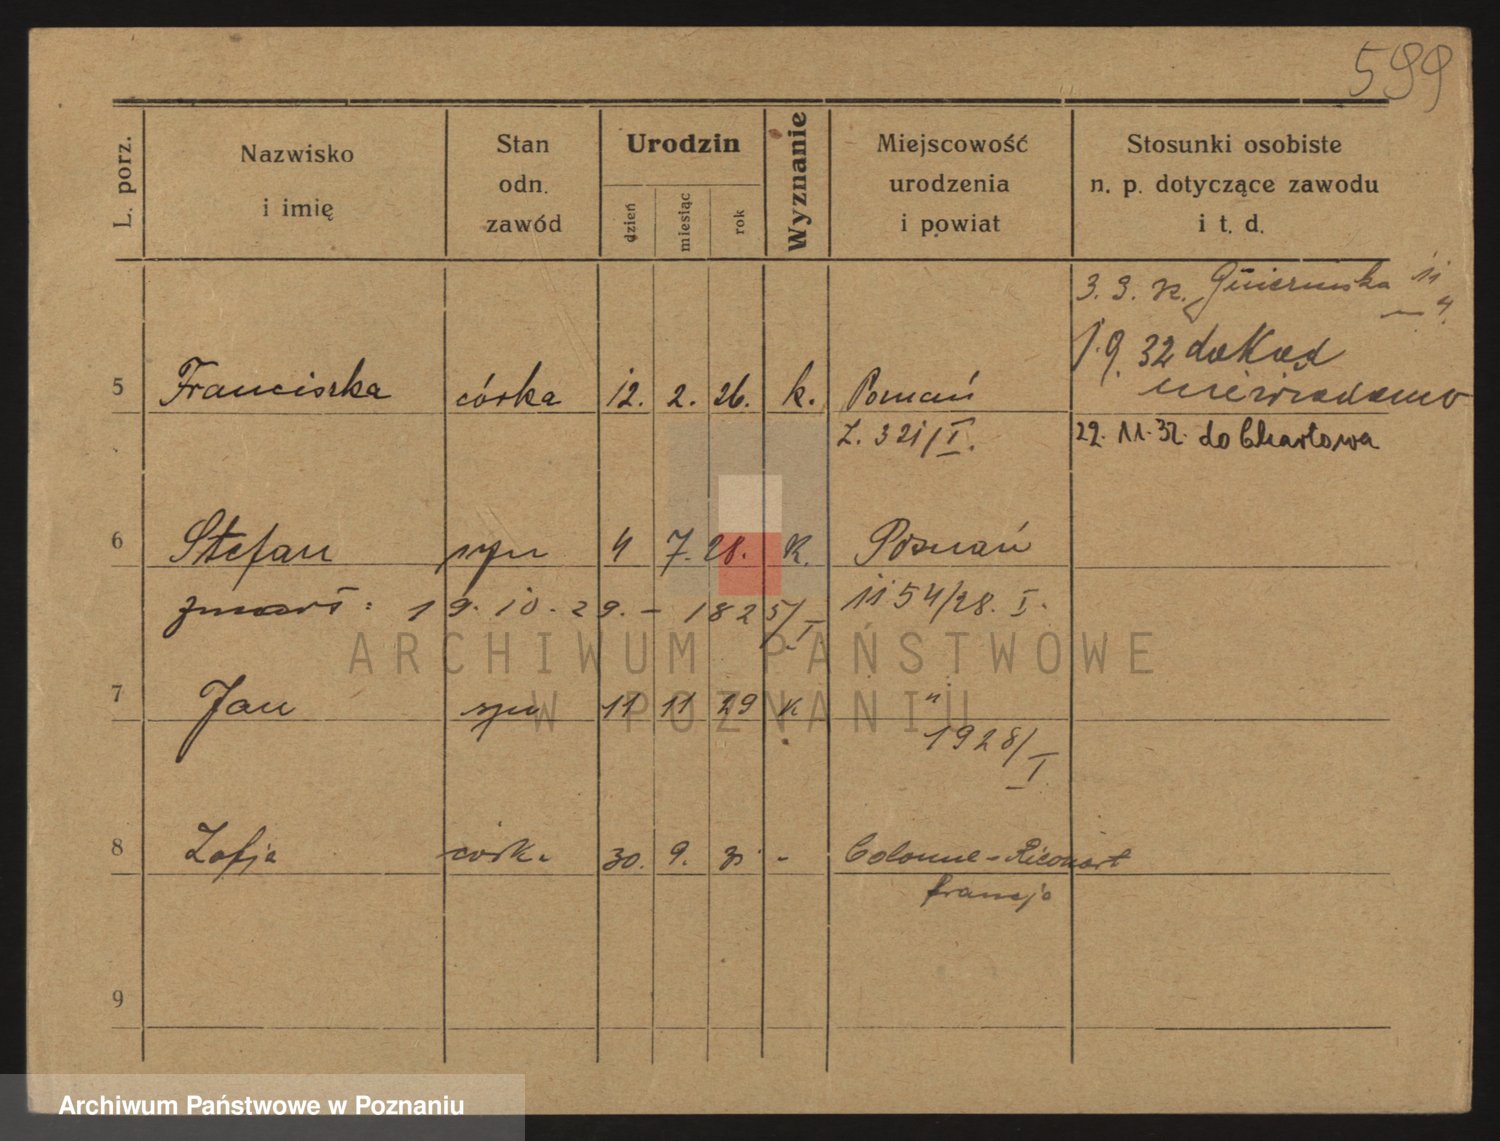 599
L. porz.
Nazwisko i imię
Stan odn. zawód
Urodzin
dzień
miesiąc
rok
Wyznanie
Miejscowość urodzenia i powiat
Stosunki osobiste n. p. dotyczące zawodu i t. d.
3. 9.
1. 9. 32 dokąd
niewiadomo
5 Franciszka córka 12. 2. 26. k. Poznań
Z. 321/I. 22. 11. 32. do Chartowa
6 Stefan syn 4 7. 28. K. Poznań
zmarł: 19. 10. 29. – 1825/I 1154/28. I.
ARCHIWUM PAŃSTWOWE
W POZNANIU
7 Jan syn 11 11 29 K "
1928/I
8 Zofja córka 30. 9. 31. -
Francja
9
Archiwum Państwowe w Poznaniu